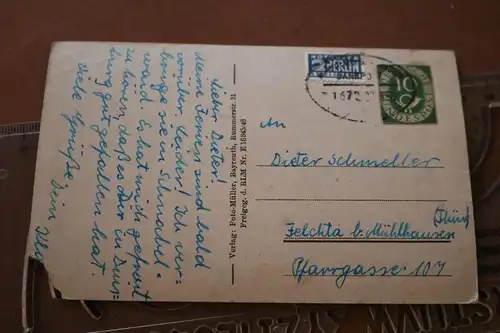 Lieber Dieter!
Meine Ferien sind bald
vorüber. Leider! Ich ver-
bringe sie in
wald. Es hat mich gefreut
zu hören, daß es Dir in
gut gefallen hat.
Viele Grüße Dein
Verlag: Foto-Müller, Bayreuth, Bummerstr. 31
Freigeg. d. RLM Nr.
NOTOPFER
2 BERLIN
STEUERMARKE
1672
10
DEUTSCHE BUNDESPOST
An
Dieter Schmeller
Felchta b. Mühlhausen
(Thür)
Pfarrgasse 107